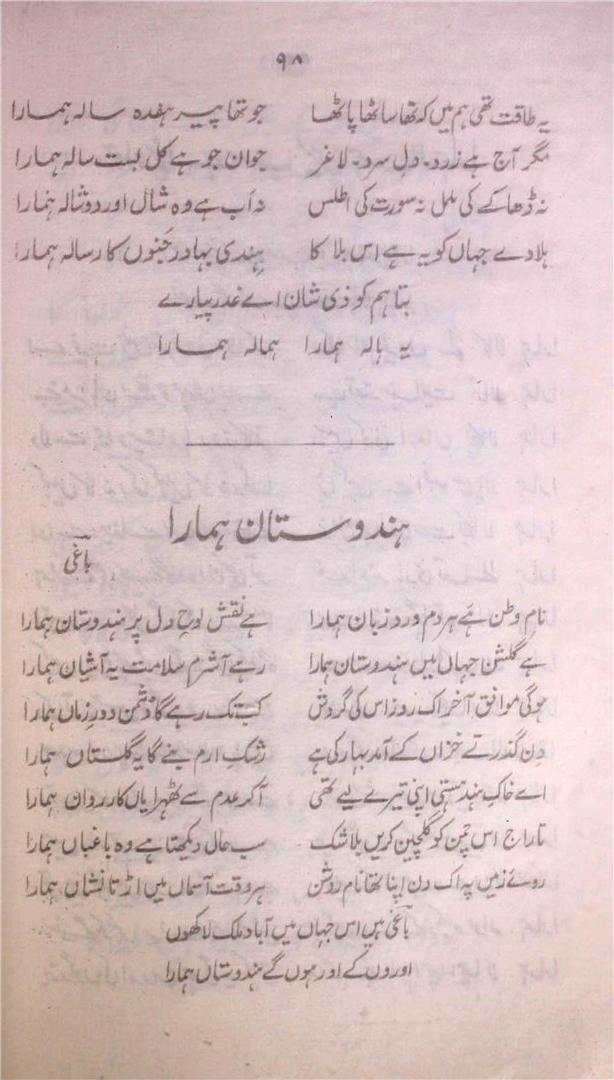 ۹۸
یہ طاقت تھی ہم میں کہ تھا ساٹھا پاٹھا جو تھا پیر ہفدہ سالہ ہمارا
مگر آج ہے زرد۔ دل سرد۔ لاغر جوان جو ہے کل بست سالہ ہمارا
نہ ڈھاکے کی ململ نہ سورت کی اطلس نہ اب ہے وہ شال اور دوشالہ ہمارا
ہلا دے جہاں کو یہ ہے اس بلا کا ہندی بہادر جنوں کا رسالہ ہمارا
بتا ہم کو ذی شان اے غدر پیارے
یہ ہالہ ہمارا ہمالہ ہمارا
ہندوستان ہمارا
باغی
نام وطن ہے ہر دم ورد زبان ہمارا ہے نقش لوح دل پر ہندوستان ہمارا
ہے گلشن جہاں میں ہندوستان ہمارا رہے آشرم سلامت یہ آشیان ہمارا
ہوگی موافق آخر اک روز اس کی گردش کب تک رہے گا دشمن دور زماں ہمارا
دن گذرتے خزاں کے آمد بہار کی ہے رشک ارم بنے گا یہ گلستاں ہمارا
اے خاک ہند ہستی اپنی تیرے لیے تھی آکر عدم سے ٹھہرا یاں کارروان ہمارا
تاراج اس چمن کو گلچین کریں بلا شک سب حال دیکھتا ہے وہ باغباں ہمارا
روئے زمیں پہ اک دن اپنا تھا نام روشن ہر وقت آسماں میں اڑتا نشاں ہمارا
باغی ہیں اس جہاں میں آباد ملک لاکھوں
اوروں کے اور ہوں گے ہندوستاں ہمارا